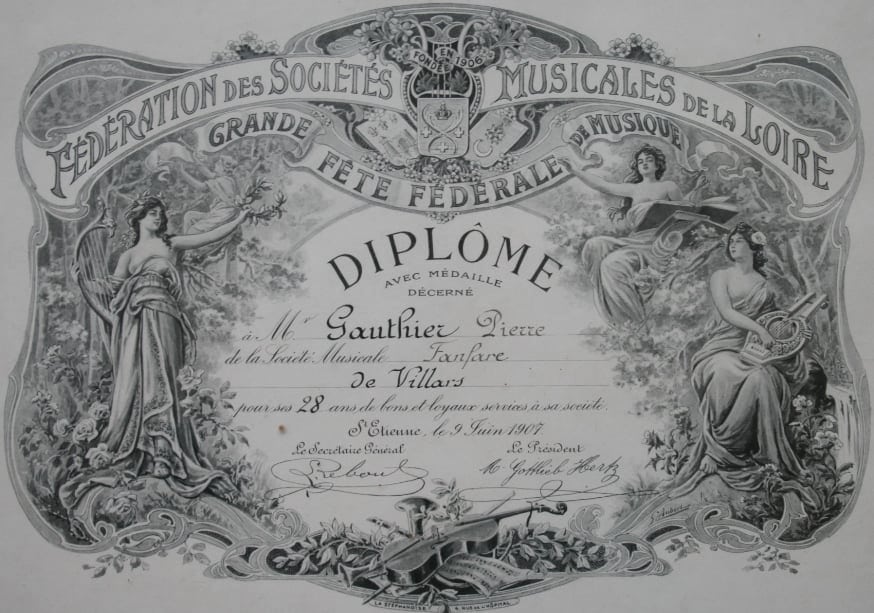 FONDÉE EN 1906
FÉDÉRATION DES SOCIÉTÉS MUSICALES DE LA LOIRE
GRANDE FÊTE FÉDÉRALE DE MUSIQUE
DIPLÔME
AVEC MÉDAILLE
DÉCERNÉ
à Mr Gauthier Pierre
de la Société Musicale Fanfare
de Villars
pour ses 28 ans de bons et loyaux services à sa société.
St Etienne, le 9 Juin 1907.
Le Secrétaire Général Le Président
Reboul M. Gottlieb Hertz
LA STÉPHANOISE 4, RUE DE L'HÔPITAL